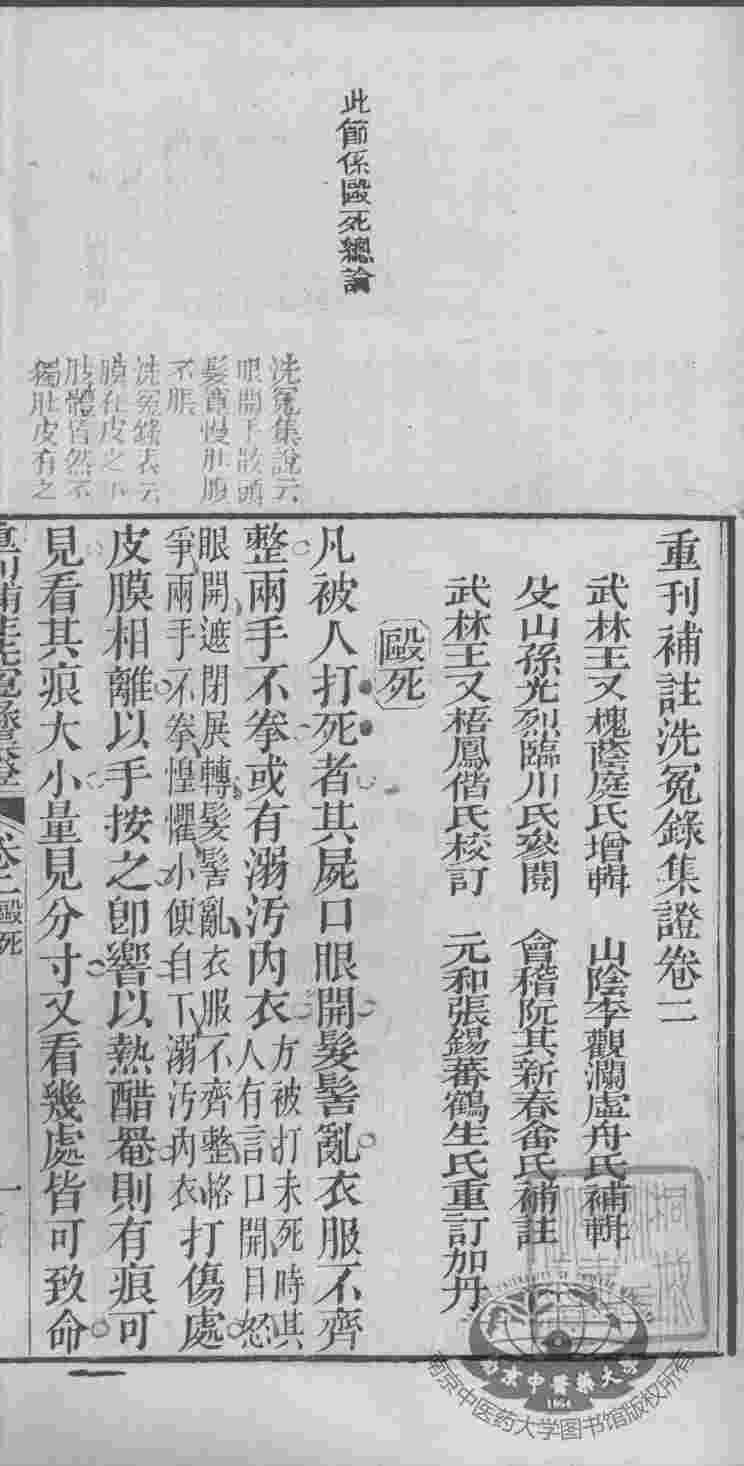 此節係毆死總論
洗冤集說云
眼開手散頭
髮寬慢肚腹
不脹
洗冤錄表云
膜在皮之下
肢體皆然不
獨肚皮有之
重刊補註洗冤錄集證卷二
武林王又槐蔭庭氏增輯　山陰李觀瀾虛舟氏補輯
孫光烈臨川氏參閱　會稽阮其新春畬氏補註
武林王又梧鳳偕氏校訂　元和張錫蕃鶴生氏重訂加丹
毆死
凡被人打死者其屍口眼開髮髻亂衣服不齊
整兩手不拳或有溺汚內衣方被打未死時其
人有言口開目怒
眼開遮閉展轉髮髻亂衣服不齊整格
爭兩手不拳惶懼小便自下溺汚內衣打傷處
皮膜相離以手按之卽響以熱醋罨則有痕可
見看其痕大小量見分寸又看幾處皆可致命
重刊補註洗冤錄集證　卷二毆死　一
南京中醫藥大學
1954
南京中医药大学图书馆版权所有